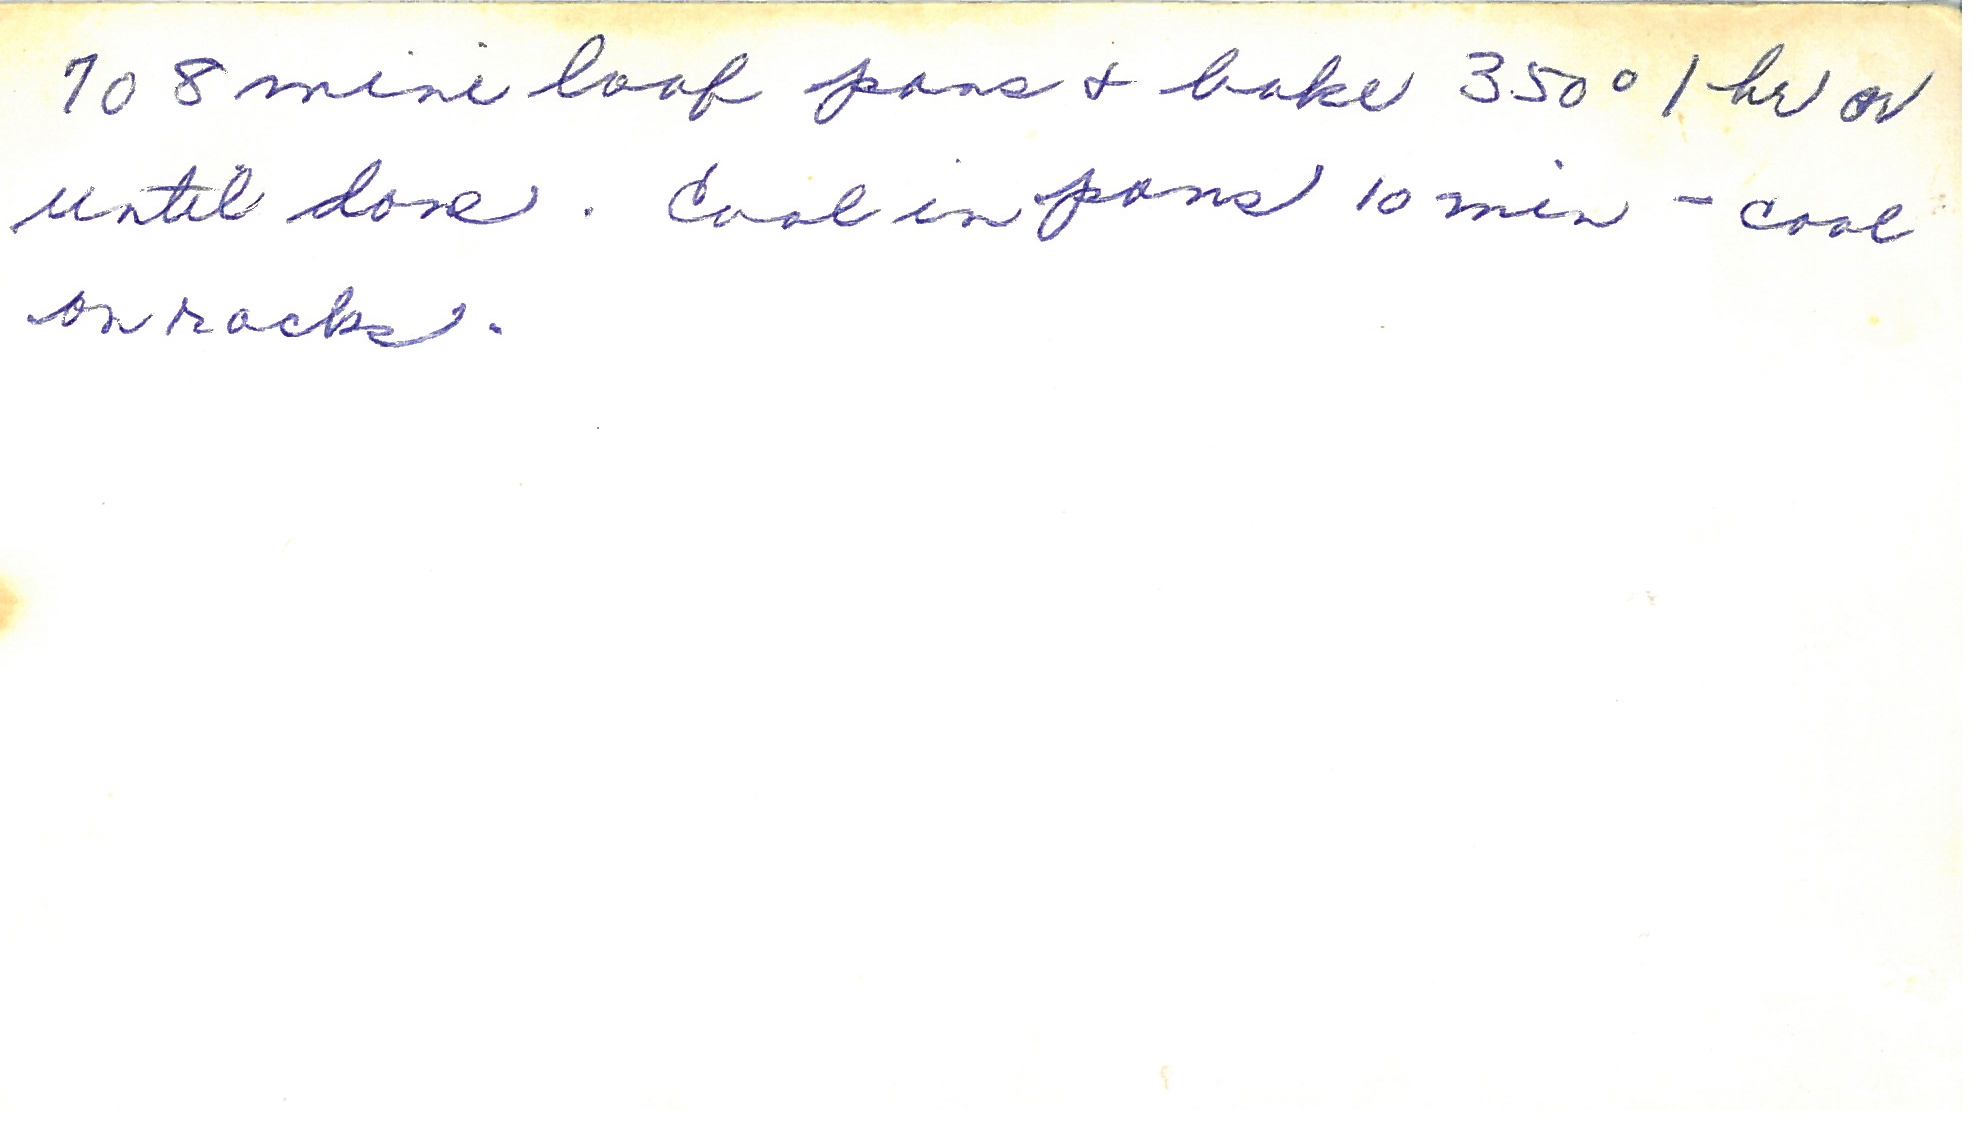 7 o 8 mini loaf pans + bake 350° 1 hr or
until done. Cool in pans 10 min - cool
on racks.